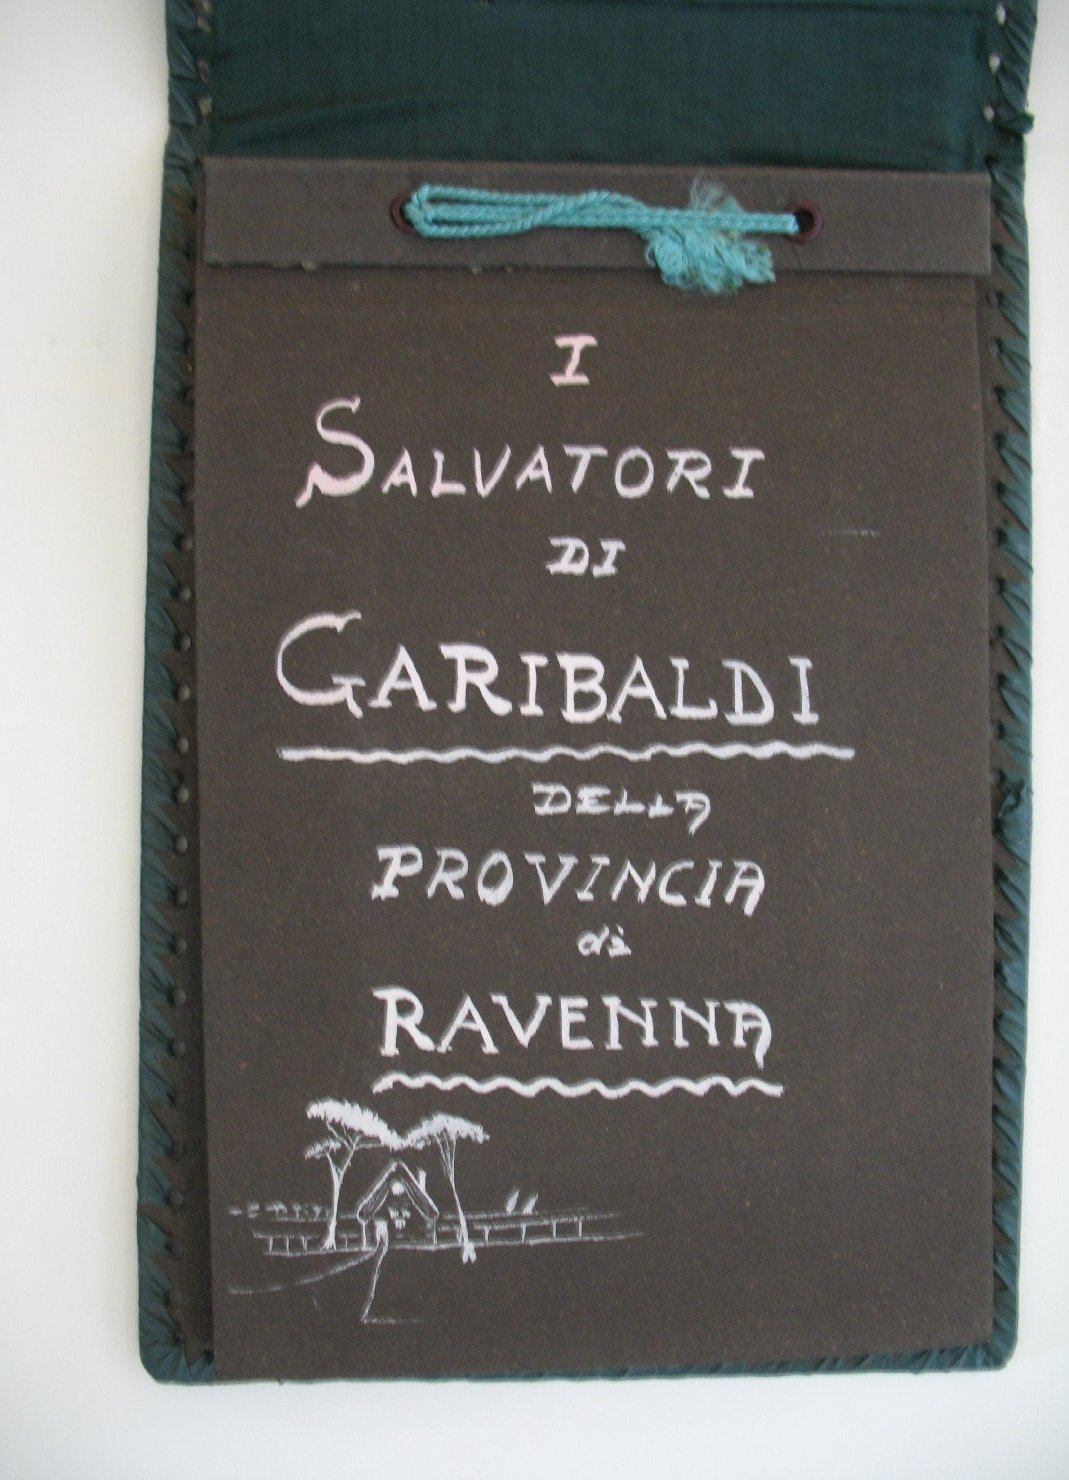 I
SALVATORI
DI
GARIBALDI
DELLA
PROVINCIA
di
RAVENNA